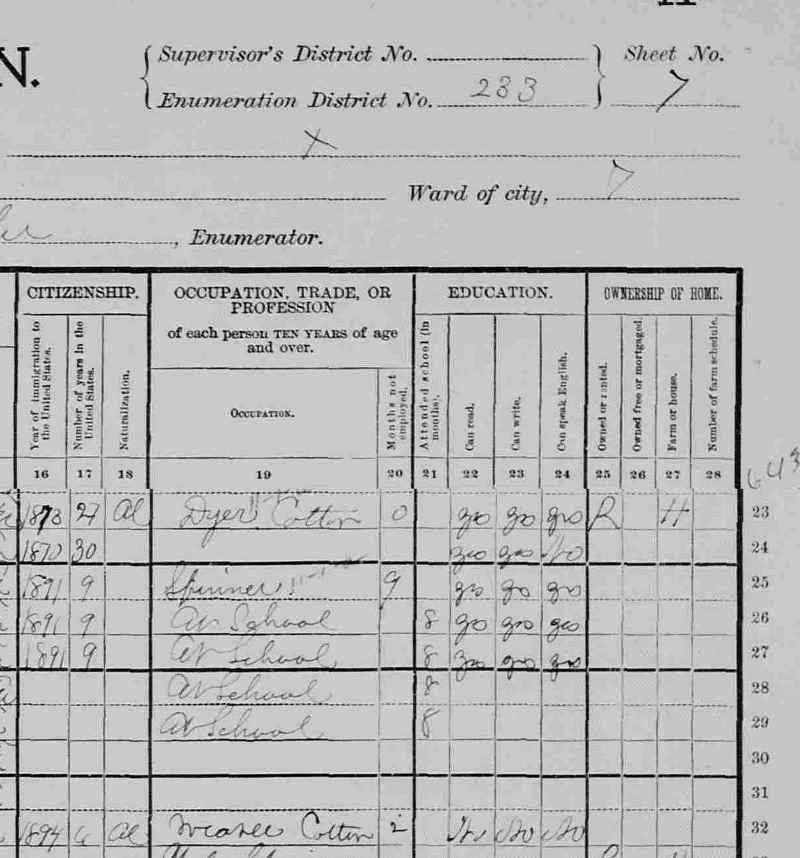 N.
Supervisor's District No.
Sheet No.
Enumeration District No. 233
7
x
Ward of city, 7
, Enumerator.
CITIZENSHIP.
OCCUPATION, TRADE, OR PROFESSION
of each person TEN YEARS of age and over.
EDUCATION.
OWNERSHIP OF HOME.
Year of immigration to the United States.
Number of years in the United States.
Naturalization.
OCCUPATION.
Months not employed.
Attended school (in months).
Can read.
Can write.
Can speak English.
Owned or rented.
Owned free or mortgaged.
Farm or house.
Number of farm schedule.
16 17 18 19 20 21 22 23 24 25 26 27 28
643
1873 27 Al Dyer Cotton 0 yes yes yes R H 23
1870 30 yes yes No 24
1891 9 Spinner 9 yes yes yes 25
1891 9 At School 8 yes yes yes 26
1891 9 At School 8 yes yes yes 27
At School 8 28
At School 8 29
30
31
1894 6 Al Weaver Cotton 2 No No No 32